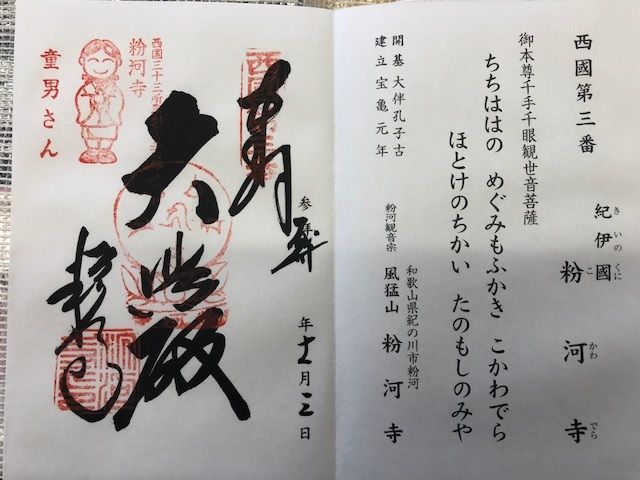 西國第三番
紀伊國 粉河寺
きいのくに こかわでら
御本尊千手千眼観世音菩薩
ちちははの めぐみもふかき こかわでら
ほとけのちかい たのもしのみや
開基 大伴孔子古
建立 宝亀元年
和歌山県紀の川市粉河
粉河観音宗 風猛山 粉河寺
奉拝
参拝
年十一月三日
大悲殿
粉河寺
西国三十三所
粉河寺
童男さん